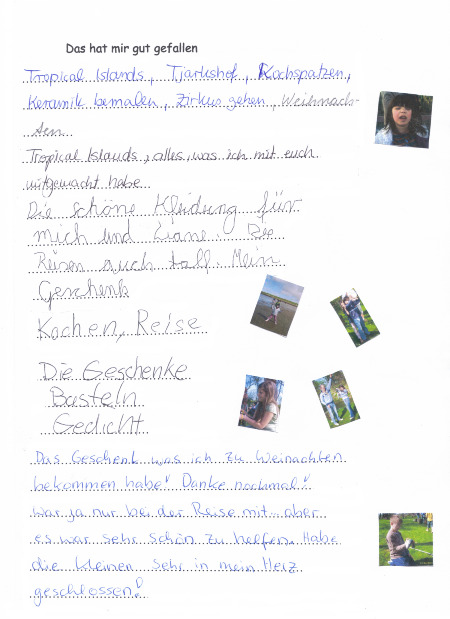 Das hat mir gut gefallen
Tropical Islands, Tjarkshof, Kochspatzen,
Keramik bemalen, Zirkus gehen, Weihnach-
ten
Tropical Islands, alles was ich mit euch
mitgemacht habe
Die schöne Kleidung für
mich und Liane. Die
Reisen auch toll. Mein
Geschenk
Kochen, Reise
Die Geschenke
Basteln
Gedicht
Das Geschenk was ich zu Weinachten
bekommen habe! Danke nochmal!
war ja nur bei der Reise mit... aber
es war sehr schön zu helfen. Habe
die kleinen sehr in mein Herz
geschlossen!